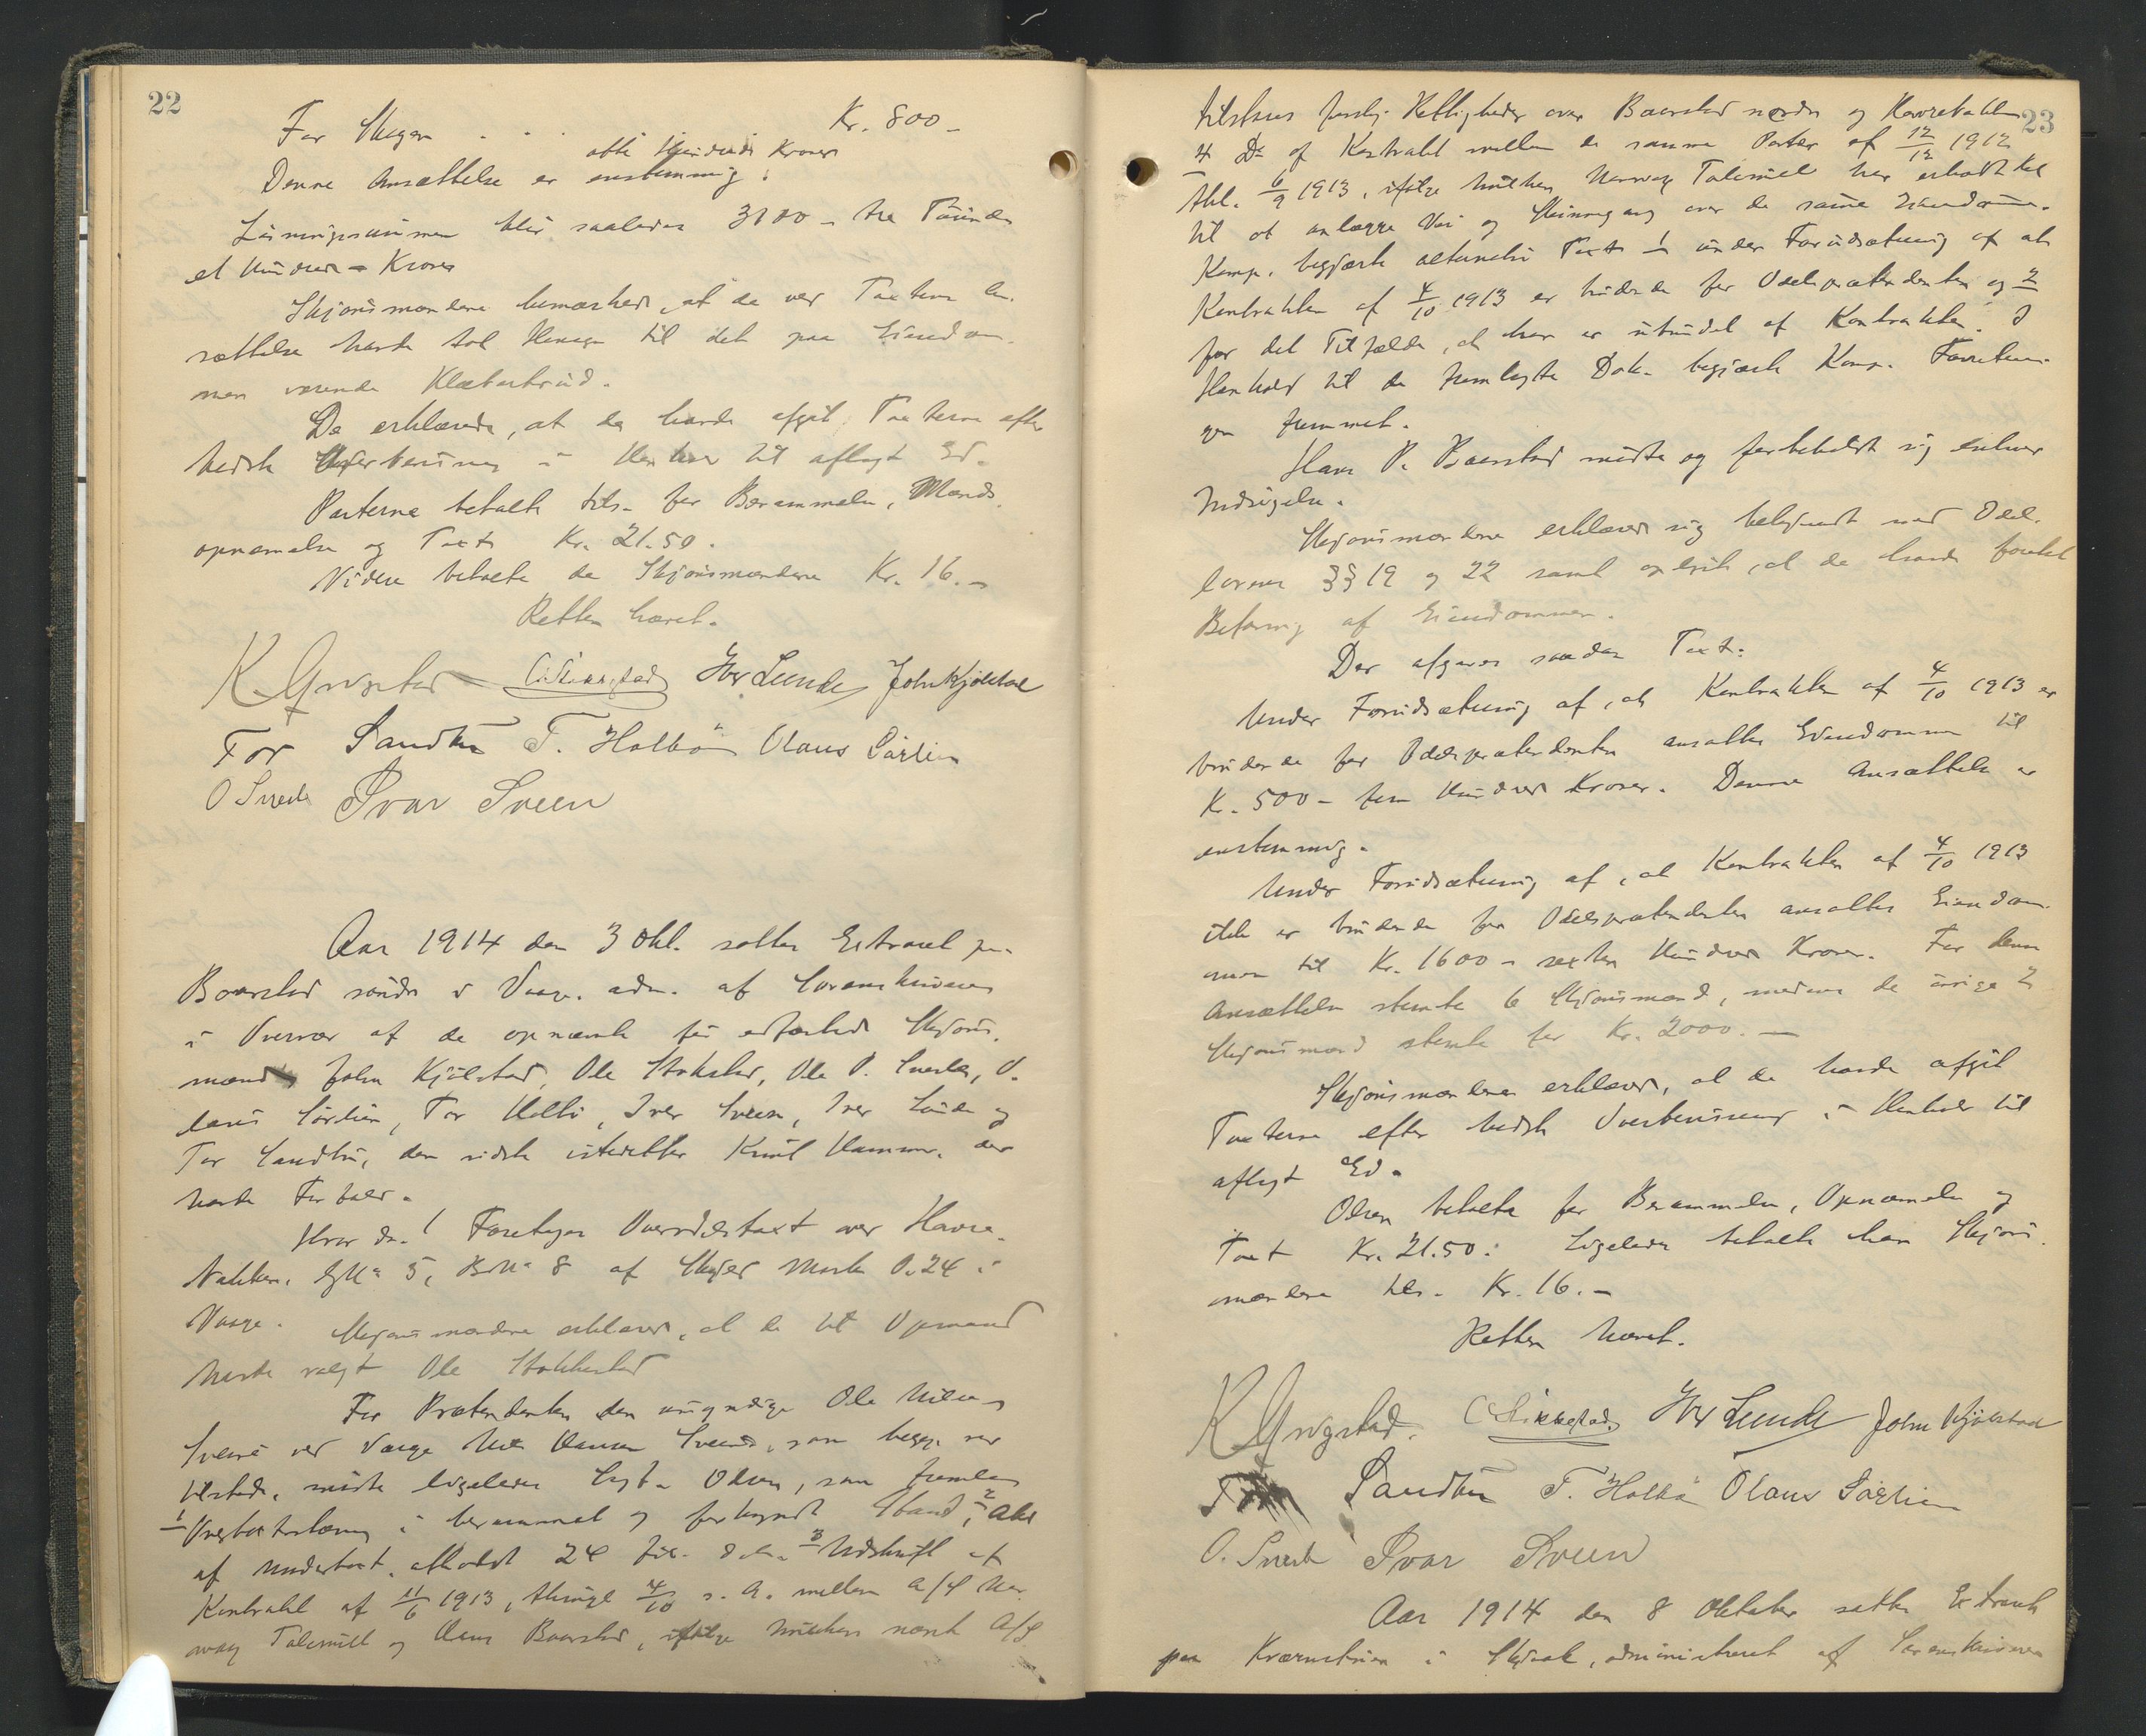 22
For Skogen . . . Kr. 800 -
otte Hundrede Kroner
Denne Ansættelse er enstemmig.
Løsningssummen blir saaledes 3100 - tre Tusinde
et Hundrede - Kroner
Skjønsmændene bemærkede, at de ved Taxtens An-
sættelse havde tat Hensyn til det paa Eiendom-
men værende Klæberbrud.
De erklærede, at de havde afgit Taxterne efter
bedste Overbevisning i Henhold til aflagt Ed.
Parterne betalte tils. for Berammelse, Mænds
opnævnelse og Taxt Kr. 21.50.
Videre betalte de Skjønsmændene Kr. 16. -
Retten hævet.
K Yngstad Iver Lunde John Kjølstad
Tor Sandbu T. Holbø Olaus Sørlien
O Sveen Ivar Sveen
Aar 1914 den 3 Okt. sattes Extraret paa
Baarstad søndre i Vaage, adm. af Sorenskriveren
i Overvær af de opnævnte før edfæstede Skjøns-
mænd John Kjølstad, Ole Stokstad, Ole P. Sveen, O-
laus Sørlien, Tor Holbø, Iver Sveen, Iver Lunde og
Tor Sandbu, den sidste istedetfor Knut Hammer, der
havde Forfald.
Hvor da! Foretages Overodelstaxt over Havre-
bakken, GNo 5, BNo 8 af Skyld Mark 0.24 i
Vaage. Skjønsmændene erklærede, at de til Opmand
havde valgt Ole Stokkestad
For Prætendenten den umyndige Ole Nilsen
Sveen ved Værge Nils Hansen Sveen, som begge var
tilstede, mødte ligeledes Olsen, som fremla
1 Overtaxtbegjæring i berammet og forkyndt Stand, 2 Akt
af Undertaxt, afholdt 24 3 Udskrift af
Kontrakt af 11/6 1913, thingl 4/10 s. A. mellem A/S Nor-
way Talcmill og Hans Baarstad, ifølge hvilken nævnte A/S
23
tilstaaes forskj. Rettigheder over Baarstad nordre og Havrebakken
4 Do af Kontrakt mellem de samme Parter af 12/12 1912
thl. 6/9 1913, ifølge hvilken Norway Talcmill har erholdt Ret
til at anlægge Vei og Skinnegang over de samme Eiendomme.
Komp. begjærte alternativ Taxt 1 under Forudsætning af at
Kontrakten af 4/10 1913 er bindende for Odelsprætendenten og 2
for det Tilfælde, at han er ubundet af Kontrakten. I
Henhold til de fremlagte Dok. begjærte Komp. Forretnin-
gen fremmet.
Hans P. Baarstad mødte og forbeholdt sig enhver
Indsigelse.
Skjønsmændene erklærede sig bekjendt med Odel-
lovens §§ 19 og 22 samt oplyste, at de havde foretat
Befaring af Eiendommen.
Der afgaves saadan Taxt:
Under Forudsætning af, at Kontrakten af 4/10 1913 er
bindende for Odelsprætendenten ansættes Eiendommen til
Kr. 500 - fem Hundrede Kroner. Denne Ansættelse er
enstemmig.
Under Forudsætning af, at Kontrakten af 4/10 1913
ikke er bindende for Odelsprætendenten ansættes Eiendom-
men til Kr. 1600 - sexten Hundrede Kroner. For denne
Ansættelse stemte 6 Skjønsmænd, medens de øvrige 2
Skjønsmænd stemte for Kr. 2000. -
Skjønsmændene erklærede, at de havde afgit
Taxterne efter bedste Overbevisning i Henhold til
aflagt Ed.
Olsen betalte for Berammelse, Opnævnelse og
Taxt Kr. 21.50. Ligeledes betalte han Skjøns-
mændene tils. Kr. 16. -
Retten hævet.
K Yngstad. Iver Lunde John Kjølstad
Sandbu T. Holbø Olaus Sørlien
O. Sveen Ivar Sveen
Aar 1914 den 8 Oktober sattes Extraret
paa i Skjaak, administreret af Sorenskriveren